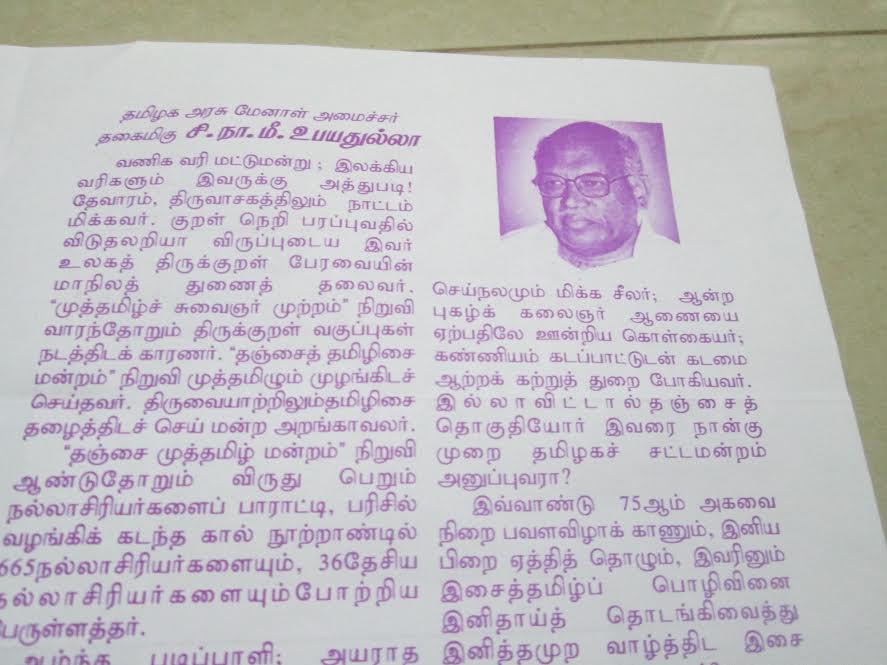 தமிழக அரசு மேனாள் அமைச்சர்
தகைமிகு சி. நா. மீ. உபயதுல்லா
வணிக வரி மட்டுமன்று ; இலக்கிய
வரிகளும் இவருக்கு அத்துபடி!
தேவாரம், திருவாசகத்திலும் நாட்டம்
மிக்கவர். குறள் நெறி பரப்புவதில்
விடுதலறியா விருப்புடைய இவர்
உலகத் திருக்குறள் பேரவையின்
மாநிலத் துணைத் தலைவர்.
“முத்தமிழ்ச் சுவைஞர் முற்றம்” நிறுவி
வாரந்தோறும் திருக்குறள் வகுப்புகள்
நடத்திடக் காரணர். “தஞ்சைத் தமிழிசை
மன்றம்” நிறுவி முத்தமிழும் முழங்கிடச்
செய்தவர். திருவையாற்றிலும்தமிழிசை
தழைத்திடச் செய் மன்ற அறங்காவலர்.
“தஞ்சை முத்தமிழ் மன்றம்” நிறுவி
ஆண்டுதோறும் விருது பெறும்
நல்லாசிரியர்களைப் பாராட்டி, பரிசில்
வழங்கிக் கடந்த கால் நூற்றாண்டில்
665நல்லாசிரியர்களையும், 36தேசிய
நல்லாசிரியர்களையும்போற்றிய
பேருள்ளத்தர்.
ஆழ்ந்த படிப்பாளி; அயராத
செய்நலமும் மிக்க சீலர்; ஆன்ற
புகழ்க் கலைஞர் ஆணையை
ஏற்பதிலே ஊன்றிய கொள்கையர்;
கண்ணியம் கடப்பாட்டுடன் கடமை
ஆற்றக் கற்றுத் துறை போகியவர்.
இல்லாவிட்டால்தஞ்சைத்
தொகுதியோர் இவரை நான்கு
முறை தமிழகச் சட்டமன்றம்
அனுப்புவரா?
இவ்வாண்டு 75ஆம் அகவை
நிறை பவளவிழாக் காணும், இனிய
பிறை ஏத்தித் தொழும், இவரினும்
இசைத்தமிழ்ப் பொழிவினை
இனிதாய்த் தொடங்கிவைத்து
இனித்தமுற வாழ்த்திட இசை